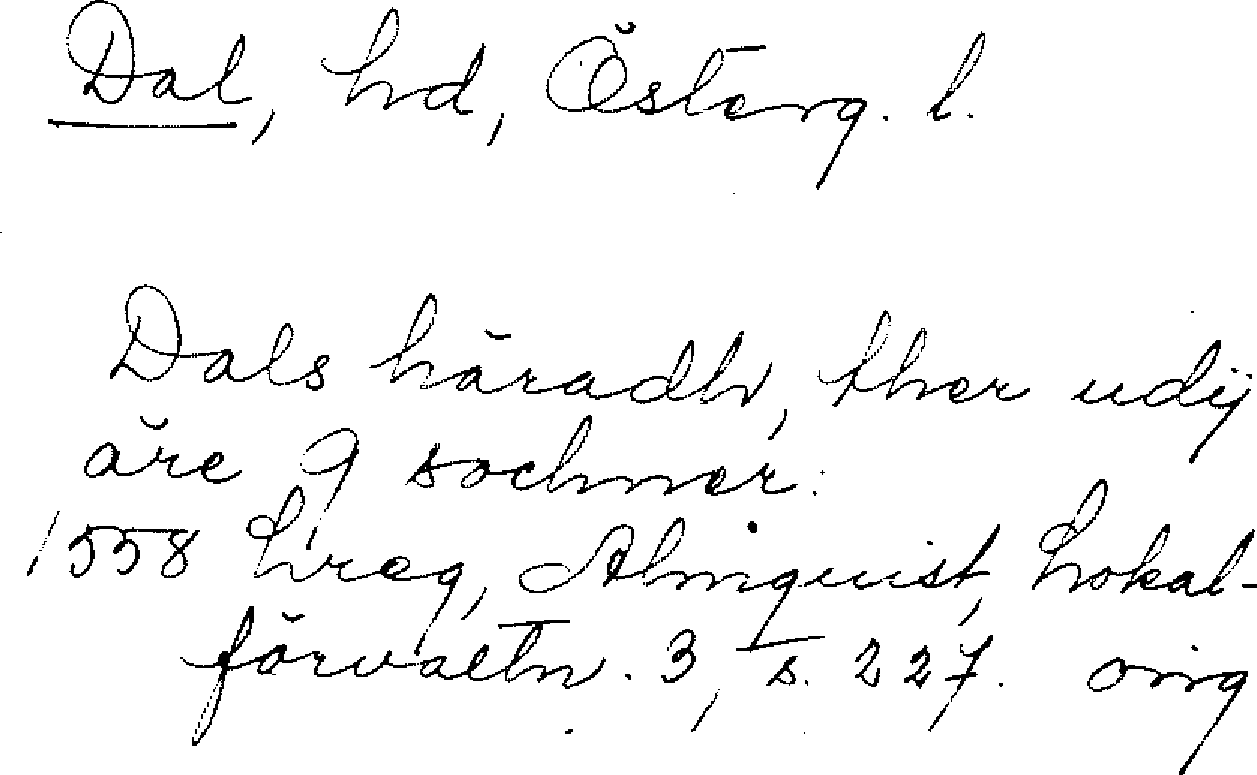 Dal, hd, Österg. l.
Dals häradh, ther udij
äre 9 sochner.
1558 hreg, Almquist, Lokal-
förvaltn. 3, s. 227. orig